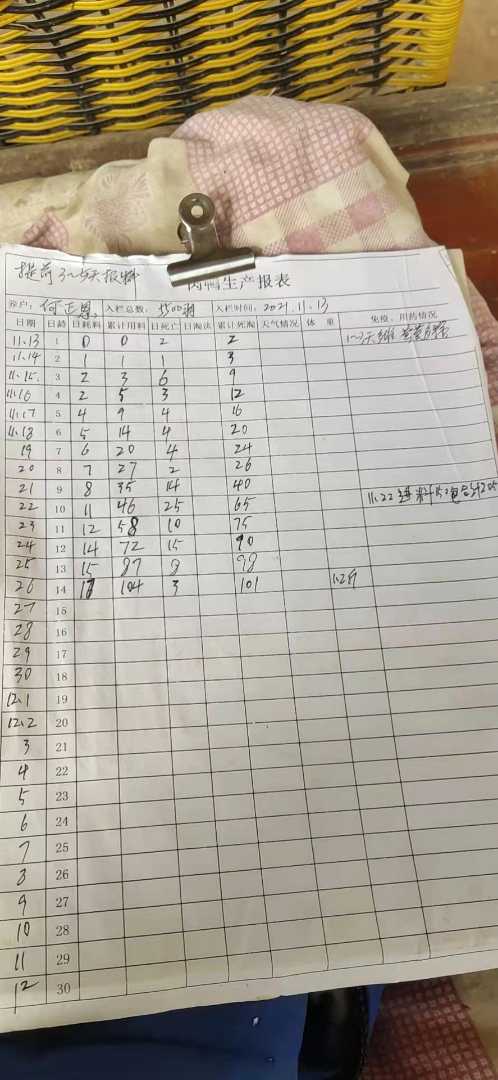 提前3~5天报料
肉鸭生产报表
养户：何正 入栏总数：3500羽 入栏时间：2021.11.13
日期 日龄 日耗料 累计用料 日死亡 日淘汰 累计死淘 天气情况 体重 免疫、用药情况
11.13 1 0 0 2 2 1~3天
11.14 2 1 1 1 3
11.15. 3 2 3 6 9
11.16 4 2 5 3 12
11.17 5 4 9 4 16
11.18 6 5 14 4 20
19 7 6 20 4 24
20 8 7 27 2 26
21 9 8 35 14 40
22 10 11 46 25 65 11.22 料
23 11 12 58 10 75
24 12 14 72 15 90
25 13 15 87 8 98
26 14 17 104 3 101 1.2斤
27 15
28 16
29 17
30 18
12.1 19
12.2 20
3 21
4 22
5 23
6 24
7 25
8 26
9 27
10 28
11 29
12 30